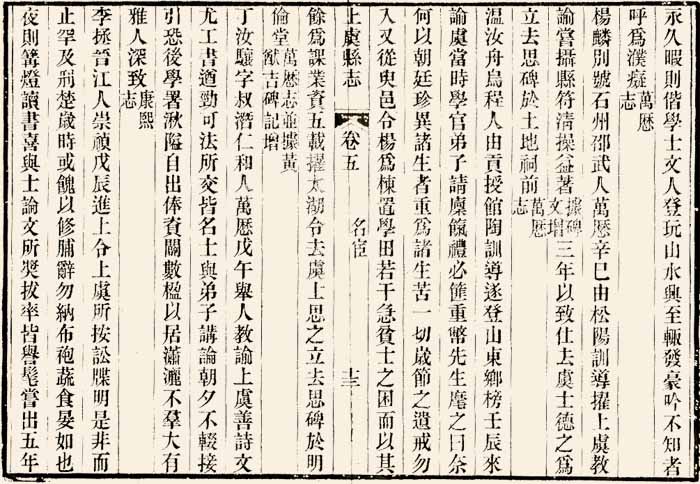 永久暇則偕學士文人登玩山水興至輙發豪吟不知者
呼爲濮癡萬厯志
楊麟別號石州邵武人萬厯辛巳由松陽訓導擢上虞教
諭嘗攝縣符淸操益著據碑文增三年以致仕去虞士德之爲
立去思碑於土地祠前萬厯志
温汝舟烏程人由貢授館陶訓導遂登山東鄉榜壬辰來
諭處當時學官弟子請廩餼禮必篚重幣先生麾之曰奈
何以朝廷珍異諸生者重爲諸生苦一切歲節之遺戒勿
入又從臾邑令楊爲棟置學田若干急貧士之困而以其
上虞縣志 卷五 名宦 十三
餘爲課業資五載擢太湖令去虞上思之立去思碑於明
倫堂萬厯志並據黃猷吉碑記增
丁汝驤字叔潛仁和人萬厯戊午舉人教諭上虞善詩文
尤工書遒勁可法所交皆名士與弟子講論朝夕不輟接
引恐後學署湫隘自出俸資闢數楹以居瀟灑不羣大有
雅人深致康熙志
李拯晉江人崇禎戊辰進士令上虞所按訟牒明是非而
止罕及刑楚歲時或餽以修脯辭勿納布袍蔬食晏如也
夜則篝燈讀書喜與士論文所奬拔率皆譽髦嘗出五年